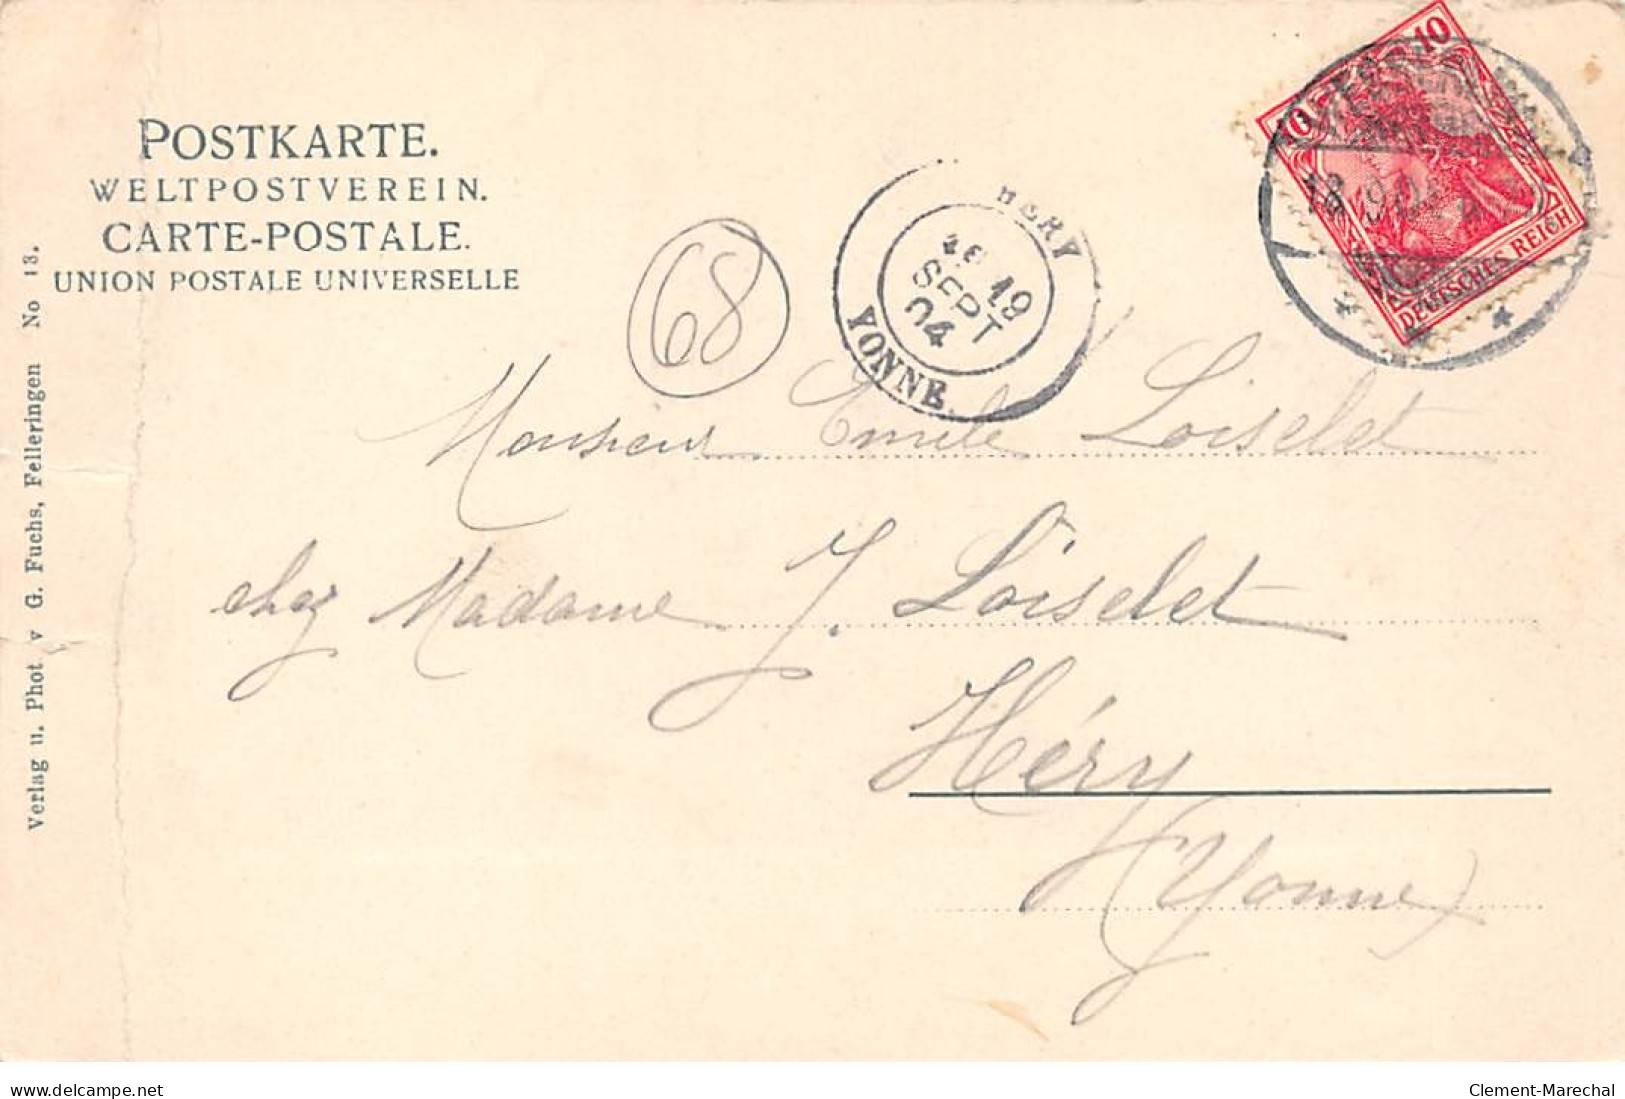 POSTKARTE.
WELTPOSTVEREIN.
CARTE-POSTALE.
UNION POSTALE UNIVERSELLE
Verlag u. Phot. v G. Fuchs, Felleringen No 13.
68
HERY
19
SEPT
04
YONNE
10
DEUTSCHES REICH
Monsieur Emile Loiselet
chez Madame J. Loiselet
Héry
(Yonne)
delcampe.net
Clement-Marechal